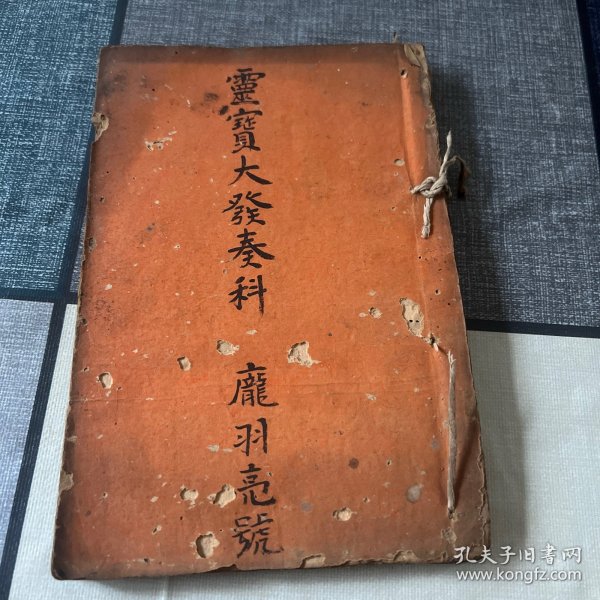 靈寶大發奏科
龐羽亮號
孔夫子旧书网
www.kongfz.com